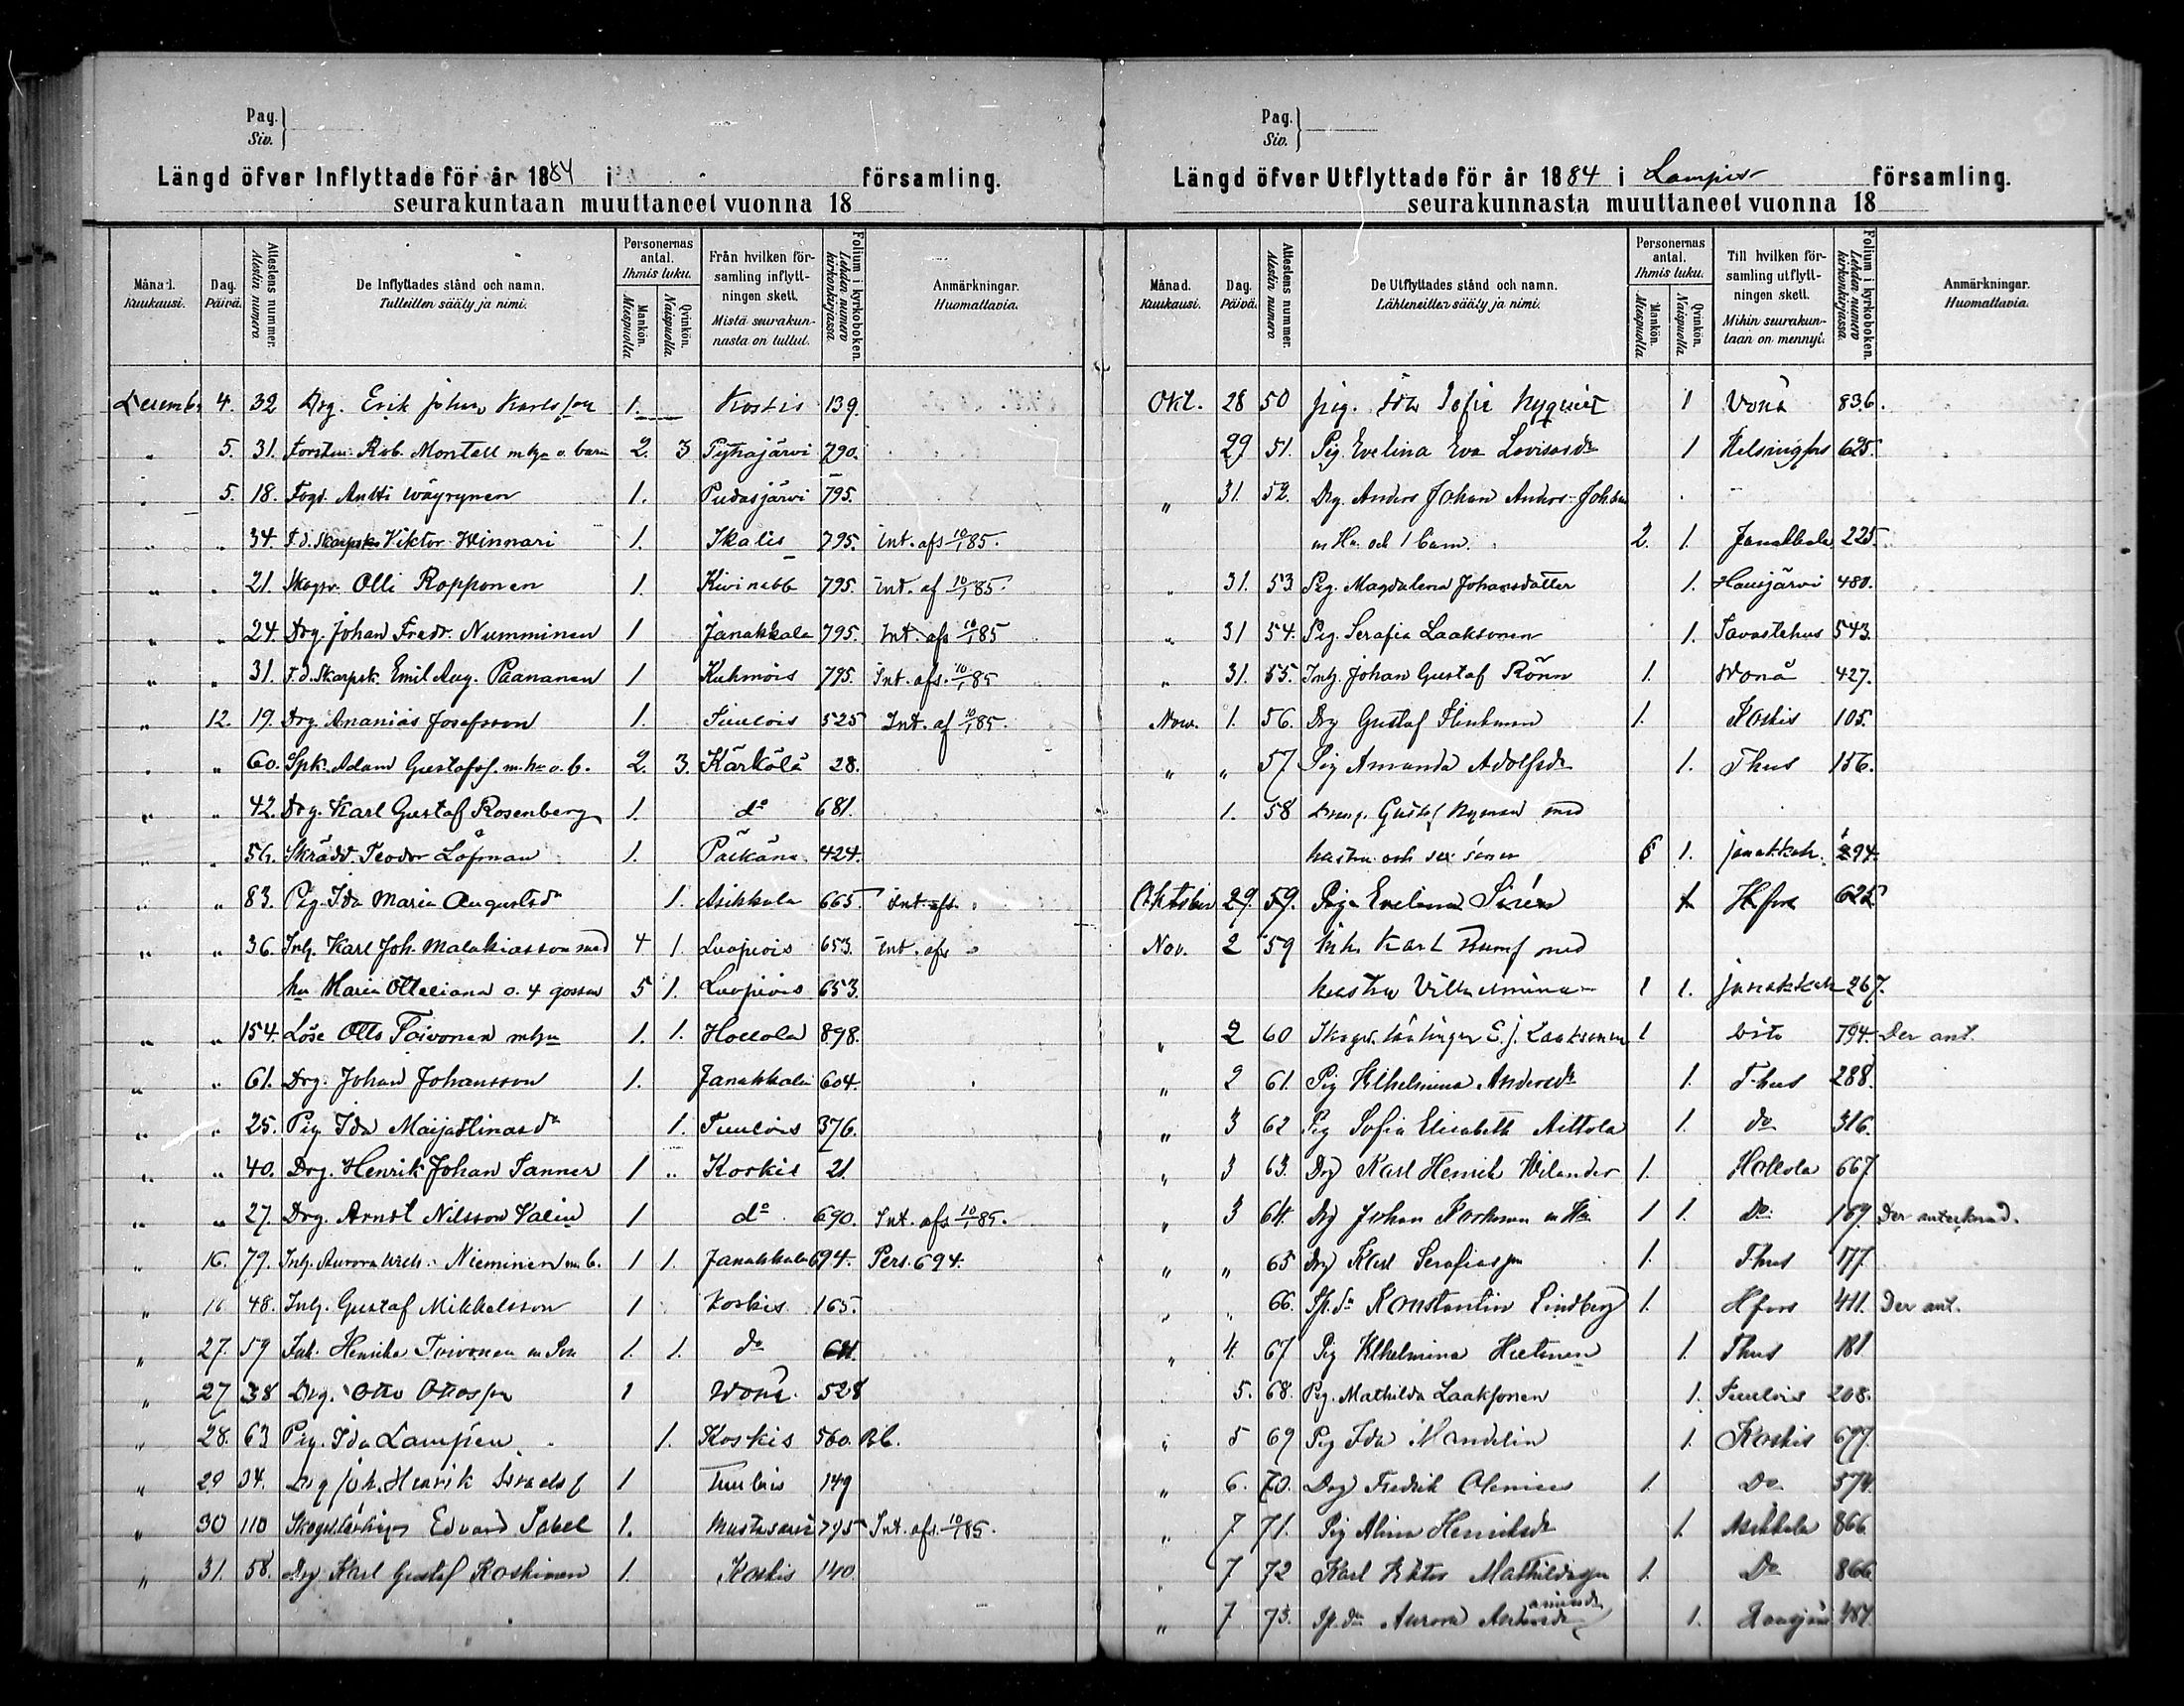 Pag.
Siv.
Längd öfver Inflyttade för år 1884 i församling.
seurakuntaan muuttaneet vuonna 18
Månad. Kuukausi. Dag. Päivä. Attestens nummer. Atestin numero De Inflyttades stånd och namn. Tulleitten sääty ja nimi. Personernas antal. Ihmis luku. Mankön. Miespuolia Qvinkön. Naispuolia Från hvilken församling inflyttningen skett. Mistä seurakunnasta on tullut. Folium i kyrkoboken. Lehden numero kirkonkirjassa Anmärkningar. Huomattavia.
Decembr 4. 32 Drg. Erik Johan Karlsson 1. Koskis 139.
" 5. 31. Rob. Montell m hu o. barn 2. 3 Pyhäjärvi 790.
" 5. 18. Fogd. Antti Wäyrynen 1. Pudasjärvi 795.
" " 34. F.d. Skarpsk Viktor Hinnari 1. Ikalis 795. Int. afs 10/1 85.
" " 21. Skogsv. Olli Ropponen 1. Kivinebb 795. Int. af 10/1 85.
" " 24. Drg. Johan Fredr. Numminen 1 Janakkala 795. Int. afs 10/1 85
" " 31. F.d. Skarpsk. Emil Aug. Paananen 1 Kuhmois 795. Int. afs. 10/1 85
" 12. 19. Drg. Ananias Josefsson 1. Tuulois 525 Int. af 10/1 85.
" " 60. Spk. Adam Gustafss. m. hu o. b. 2. 3. Kärkölä 28.
" " 42. Drg. Karl Gustaf Rosenberg 1. do 681.
" " 56. Skrädd. Teodor Löfman 1. Pälkäne 424.
" " 83. Pig. Ida Maria Augustsdr 1. Asikkala 665. Int. afs. "
" " 36. Inh. Karl Joh. Malakiasson med 4 1. Luopiois 653. Int. afs "
hu Maria Otteliana o. 4 gossar 5 1. Luopiois 653.
" " 154. Löse Otto Toivonen m hu 1. 1. Hollola 898.
" " 61. Drg. Johan Johansson 1. Janakkala 604.
" " 25. Pig. Ida Maijastinasdr 1. Tuulois 376.
" " 40. Drg. Henrik Johan Sanner 1 " Koskis 21
" " 27. Drg. Arndt Nilsson Valin 1 do 690. Int. afs 10/1 85.
" 16. 79. Inh. Aurora Nieminen m. b. 1 1. Janakkala 694. Pers. 694.
" 16 48. Inh. Gustaf Mikkelsson 1 Koskis 165.
" 27. 59 Inh. Henrika Toivonen m Son 1. 1. do 611.
" 27 38 Drg. Otto Ottosson 1 Wonå. 528
" 28. 63 Pig. Ida Lampen 1. Koskis 560.
" 29 34. Drg Joh. Henrik Israelss 1 Tuulois 149
" 30 110 Edvard Sabel 1. Mustasaari 795 Int. afs. 10/1 85.
" 31. 58. Drg Karl Gustaf Koskinen 1. Koskis 140.
Pag.
Siv.
Längd öfver Utflyttade för år 1884 i Lampis församling.
seurakunnasta muuttaneet vuonna 18
Månad. Kuukausi. Dag. Päivä. Attestens nummer. Atestin numero De Utflyttades stånd och namn. Lähteneitten sääty ja nimi. Personernas antal. Ihmis luku. Mankön. Miespuolia Qvinkön. Naispuolia Till hvilken församling utflyttningen skett. Mihin seurakuntaan on mennyt. Folium i kyrkoboken. Lehden numero kirkonkirjassa Anmärkningar. Huomattavia.
Okt. 28 50 Pig. Ida Sofia Nyqvist 1 Vonå 836.
29 51. Pig. Evelina Eva Lovisasdr 1 Helsingfors 625.
" 31. 52. Drg. Anders Johan Anders-Johsson
m Hu. och 1 barn. 2. 1. Janakkala 225.
" 31. 53 Pig. Magdalena Johansdotter 1. Hausjärvi 480.
" 31 54. Pig. Serafia Laaksonen 1. Tavastehus 543.
" 31. 55. Inh. Johan Gustaf Rönn 1. Wonå 427.
Nov. 1. 56. Drg Gustaf Flinkman 1. Koskis 105.
" " 57 Pig Amanda Adolfsdr 1. Thus 156.
1. 58 Dreng. Gustaf Nyman med
hustru och sex söner 6 1. Janakkala. 294.
Oktober 29. 59. Piga Evelina Sirén 1 Hfors 625
Nov. 2 59 Inh. Karl Rumf med
hustru Vilhelmina 1 1. Janakkala 267.
" 2 60 E. J. Laaksonen 1 794. Der ant.
" 2 61. Pig Wilhelmina Andersdr 1. T-hus 288.
" 3 62 Pig Sofia Elisabeth Aittola 1. do 316.
" 3 63. Drg Karl Henrik Wilander 1. Hollola 667
" 3 64. Drg Johan Korhonen m Hu 1 1. Do 169. Der antecknad.
" " 65 Drg Karl Serafiasson 1. Thus 177.
" " 66. Konstantin Lindberg 1. Hfors 411. Der ant.
" 4. 67 Pig Wilhelmina Hietanen 1. Thus 181.
5. 68. Pig. Mathilda Laaksonen 1. Tuulois 208.
" 5 69 Pig Ida Mandelin 1. Koskis 677.
" 6. 70. Drg Fredrik Olenius 1. Do 574.
" 7 71. Pig Alina Henriksdr 1. Asikkala 866
" 7 72 Karl Viktor Mathildasson 1. Do 866
" 7 73. Aurora 1. Hausjärvi 484.